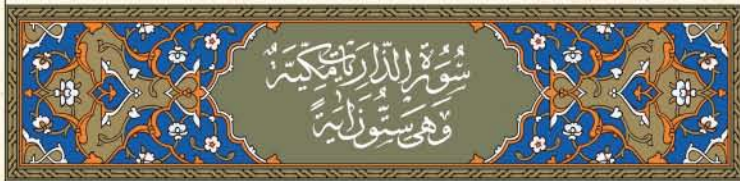 سُورَةُ الذَّارِيَاتِ مَكِّيَّةٌ
وَهِيَ سِتُّونَ اٰيَةً